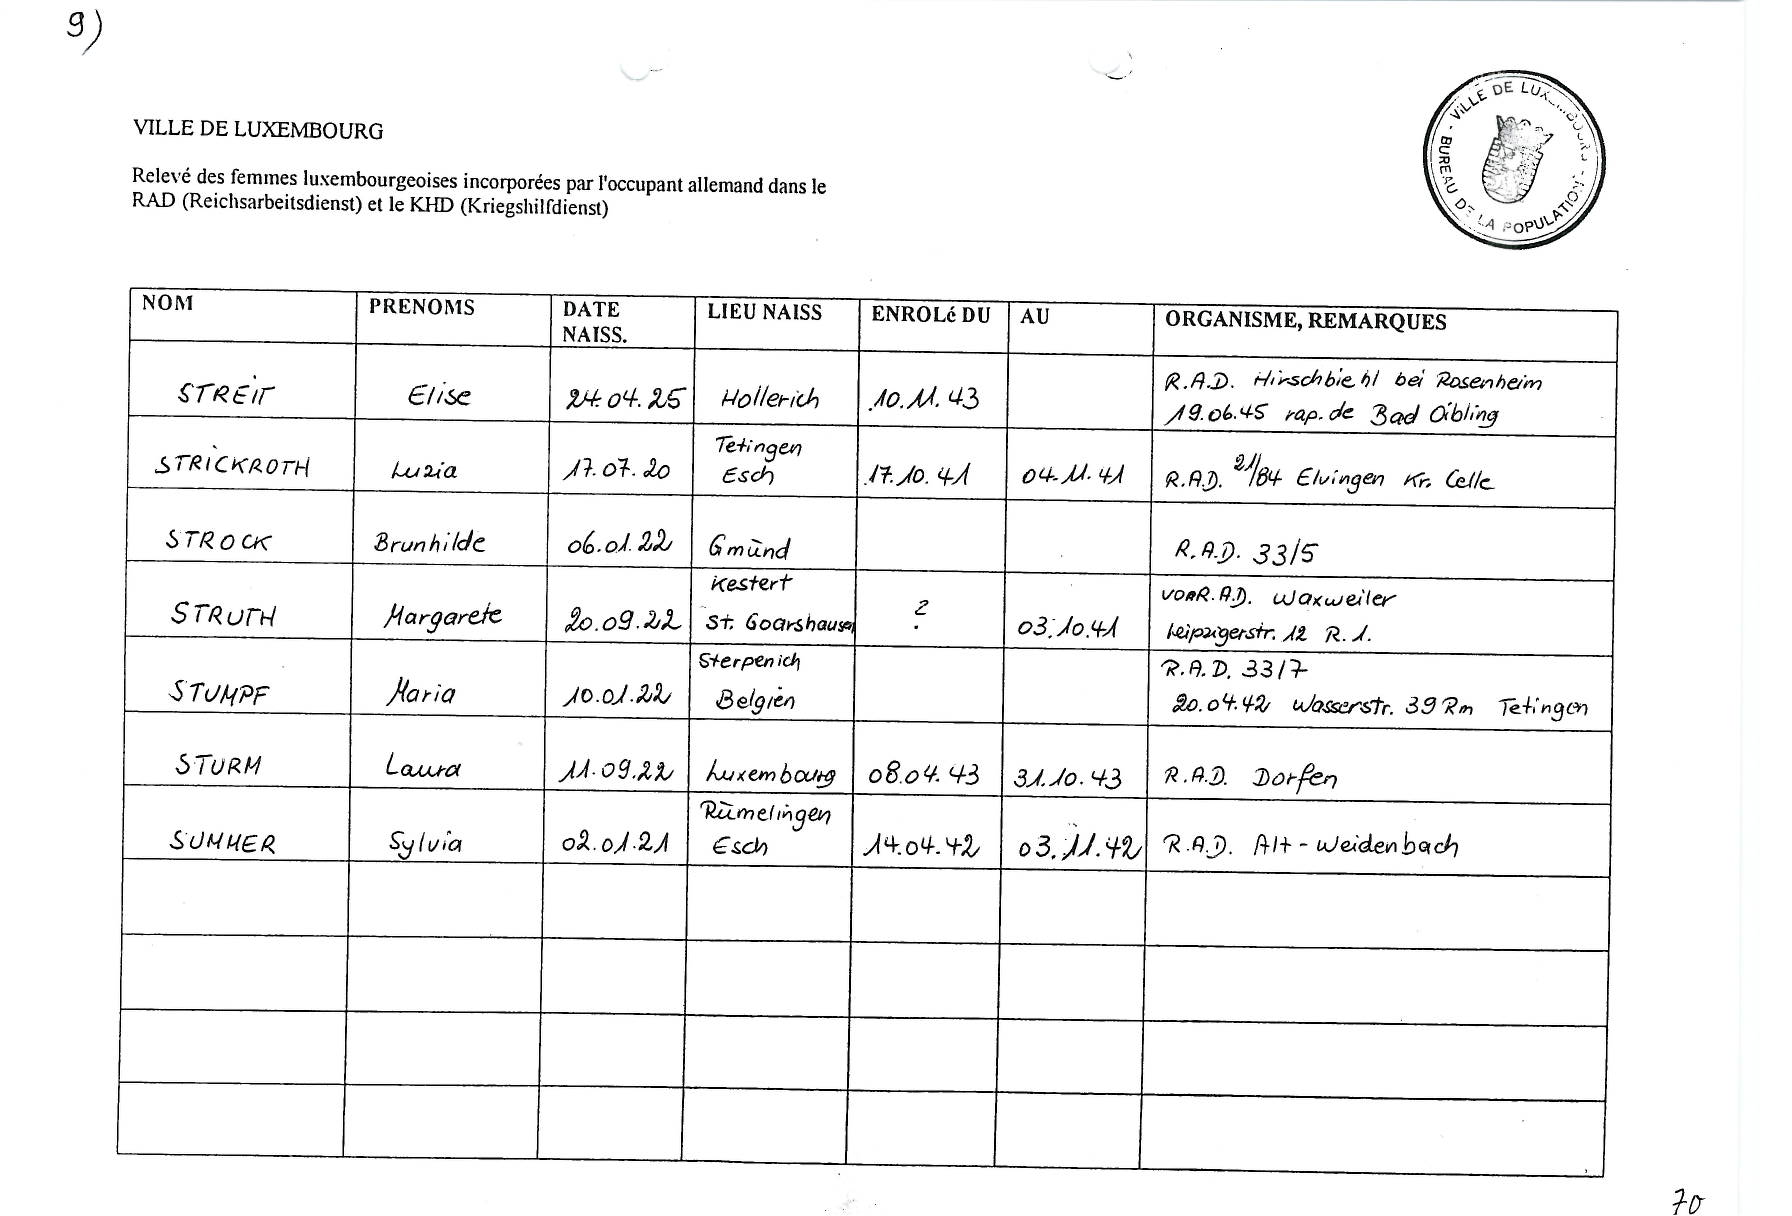 9)
VILLE DE LUXEMBOURG
Relevé des femmes luxembourgeoises incorporées par l'occupant allemand dans le
RAD (Reichsarbeitsdienst) et le KHD (Kriegshilfdienst)
- VILLE DE LUXEMBOURG -
BUREAU DE LA POPULATION
NOM PRENOMS DATE NAISS. LIEU NAISS ENROLé DU AU ORGANISME, REMARQUES
STREIT Elise 24.04.25 Hollerich 10.11.43 R.A.D. Hirschbiehl bei Rosenheim
19.06.45 rap. de Bad Oibling
STRICKROTH Luzia 17.07.20 Tetingen
Esch 17.10.41 04.11.41 R.A.D. 21/84 Elvingen Kr. Celle
STROCK Brunhilde 06.01.22 Gmünd R.A.D. 33/5
STRUTH Margarete 20.09.22 Kestert
St. Goarshausen ? 03.10.41 R.A.D. Waxweiler
Leipzigerstr. 12 R.1.
STUMPF Maria 10.01.22 Sterpenich
Belgien R.A.D. 33/7
20.04.42 Wasserstr. 39 Rm Tetingen
STURM Laura 11.09.22 Luxembourg 08.04.43 31.10.43 R.A.D. Dorfen
SUMMER Sylvia 02.01.21 Rümelingen
Esch 14.04.42 03.11.42 R.A.D. Alt-Weidenbach
70